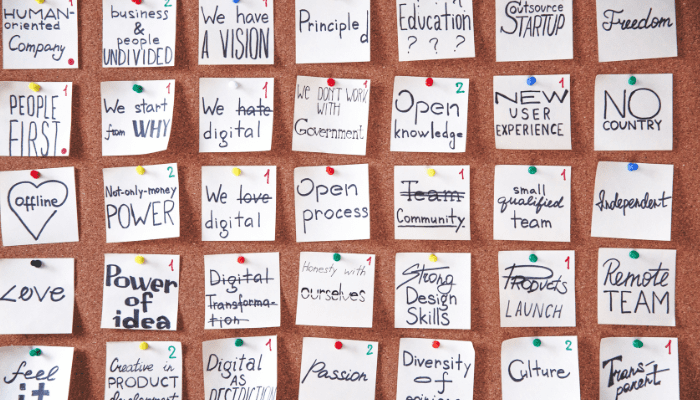 HUMAN-
oriented
Company
business
&
people
UNDIVIDED
2
We have
A VISION
1
Principled
Education
? ? ?
Outsource
STARTUP
Freedom
PEOPLE
FIRST
1
We start
from WHY
1
We hate
digital
1
We DON'T WORK
WITH
Government
1
Open
knowledge
2
NEW
USER
EXPERIENCE
1
NO
COUNTRY
offline
Not-only-money
POWER
2
We love
digital
Open
process
Team
Community
1
small
qualified
team
1
Independent
Love
Power
of
idea
1
Digital
Transforma-
tion
Honesty with
ourselves
1
Strong
Design
Skills
Products
LAUNCH
1
Remote
TEAM
feel
it
Creative in
PRODUCT
development
2
Digital
AS
1
Passion
2
Diversity
of
Culture
2
Trans-
parent
1